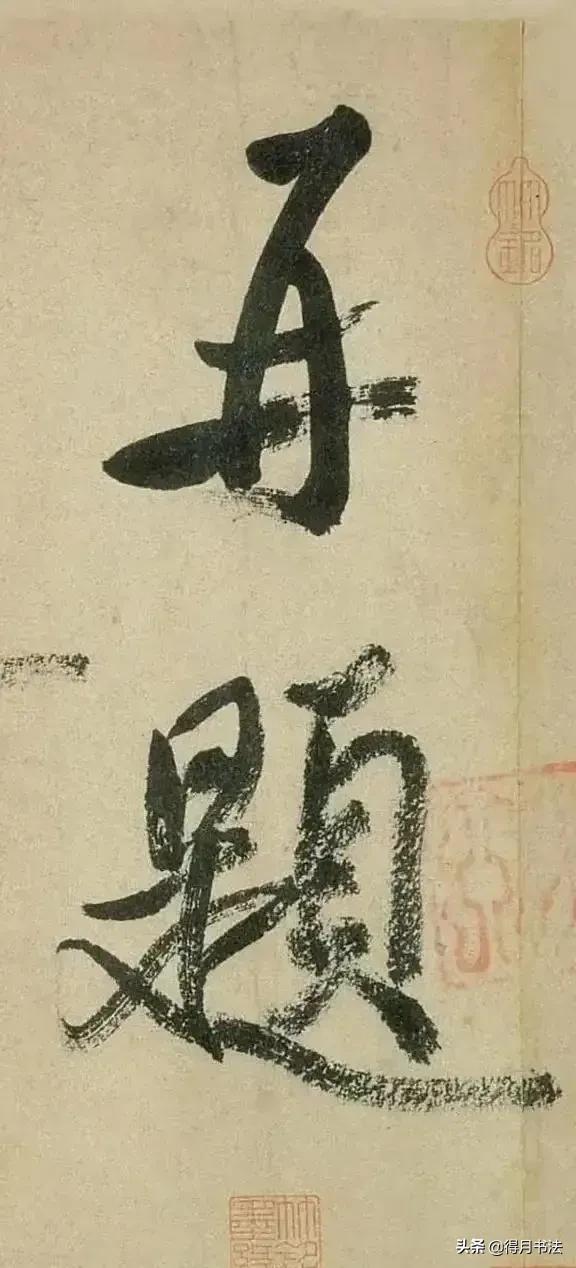 再題
头条 @得月书法